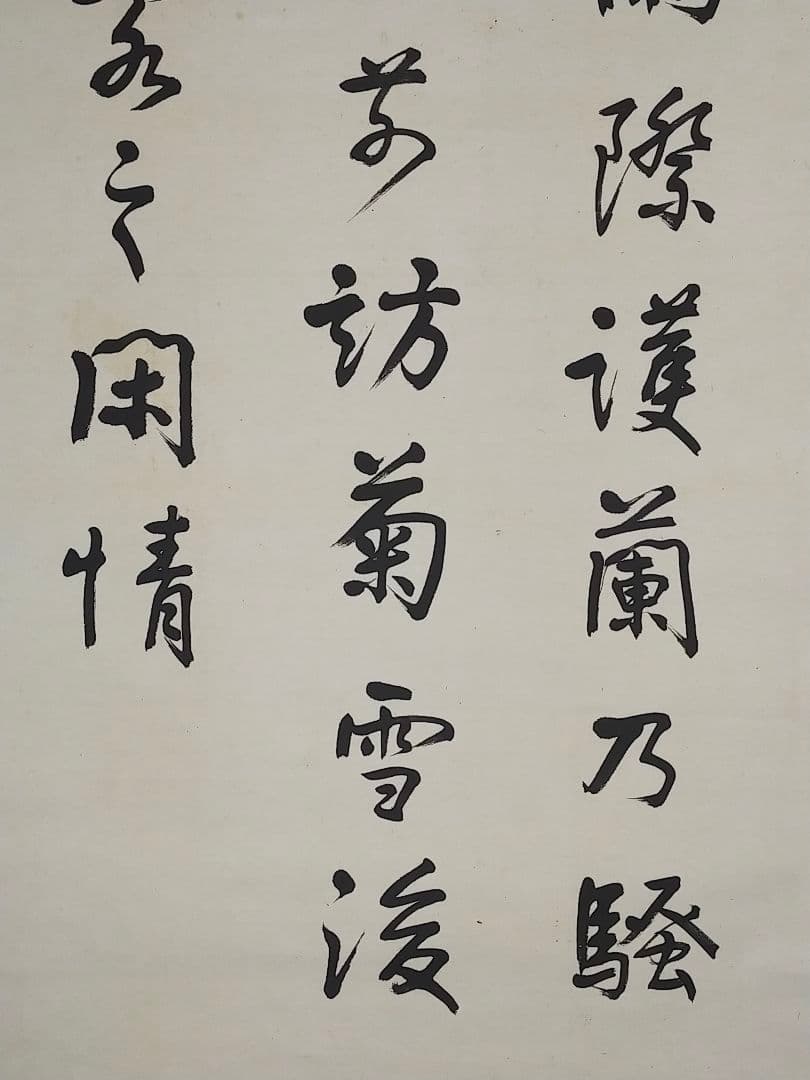 際護蘭乃騷
前訪菊雪後
客之閑情